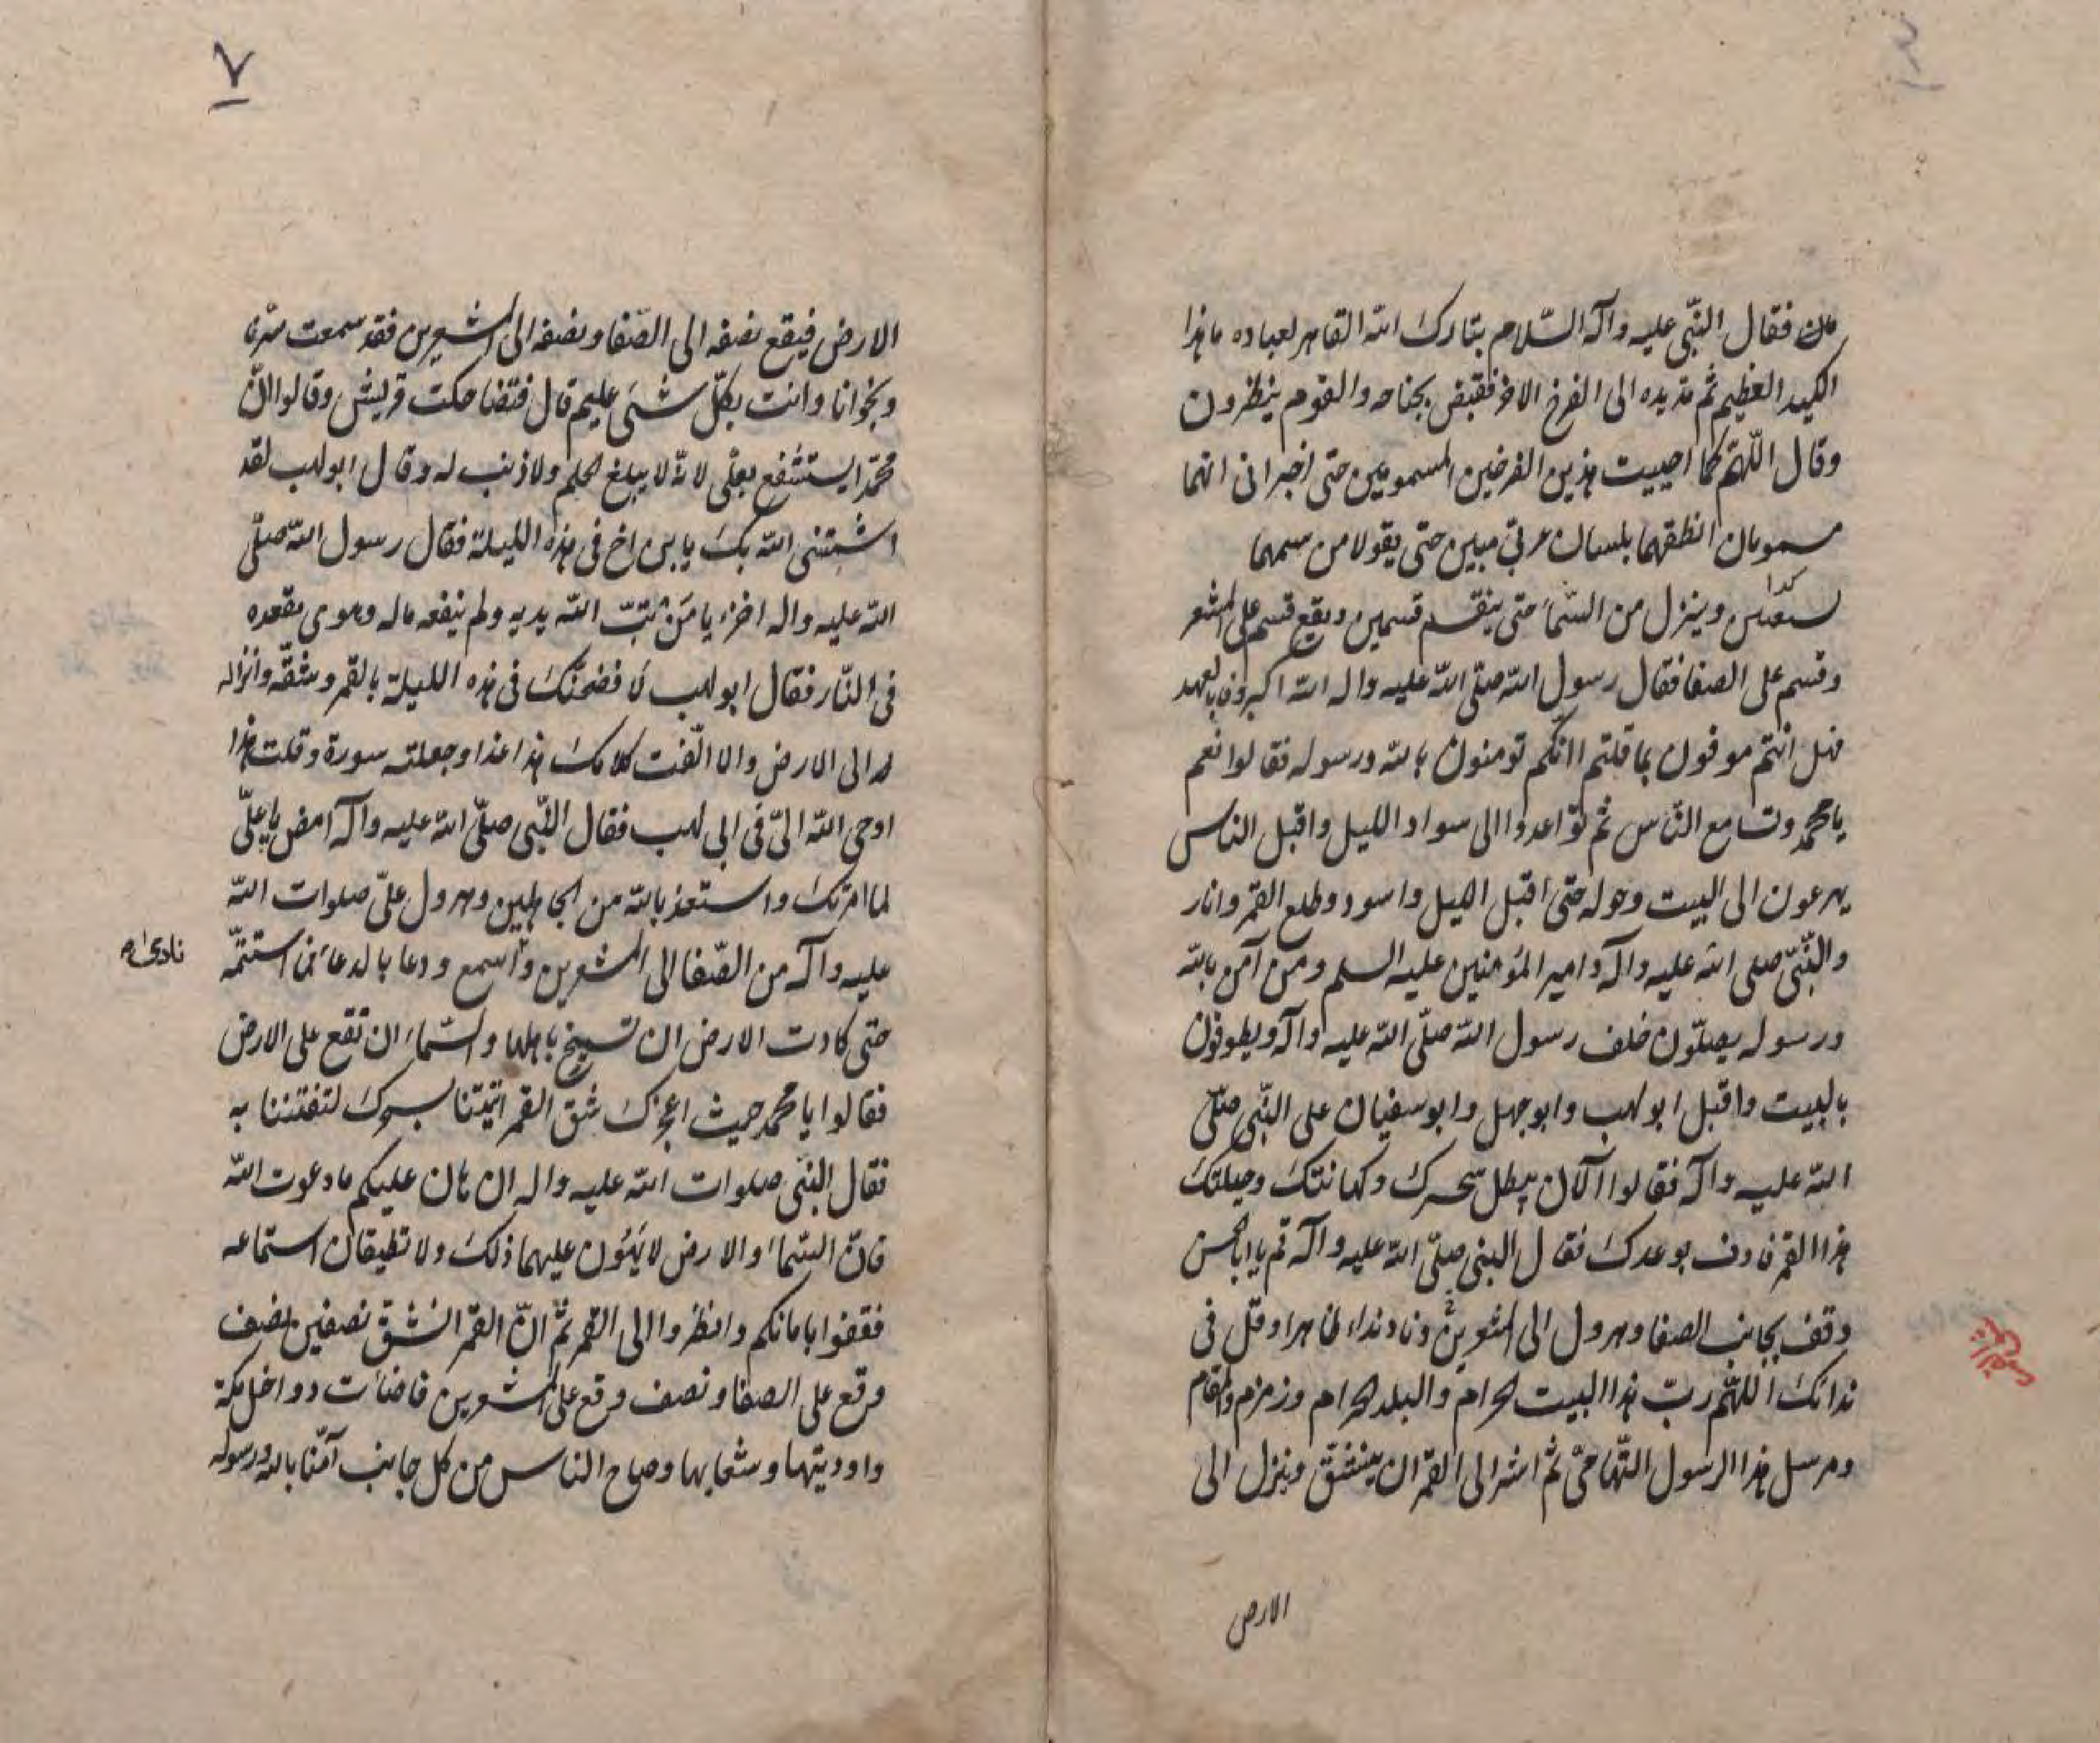 مات فقال النّبی علیه وآله السّلام تبارک الله القاهر لعباده ما هذا
الکید العظیم ثم مد یده الی الفرخ الاخر فقبض بجناحه والقوم ینظرون
وقال اللّهم کما احییت هذین الفرخین المسمومین حتی اخبرانی انهما
مسمومان انطقهما بلسان عربیّ مبین حتی یقولا من سمهما
کذا
وینزل من السّمآء حتی ینقسم قسمین ویقع قسم علی المشعر
وقسم علی الصفا فقال رسول الله صلّی الله علیه واله الله اکبر وفی بالعهد
فهل انتم موفون بما قلتم اانکم تومنون بالله ورسوله فقالوا نعم
یا محمد وتسامع النّاس ثم تواعدوا الی سواد اللیل واقبل الناس
یهرعون الی البیت وحوله حتی اقبل اللیل واسود وطلع القمر وانار
والنّبیّ صلی الله علیه وآله وامیر المؤمنین علیه السلم ومن آمن بالله
ورسوله یصلّون خلف رسول الله صلّی الله علیه وآله ویطوفون
بالبیت واقبل ابو لهب وابو جهل وابو سفیان علی النّبی صلّی
الله علیه وآله فقالوا الآن یبطل سحرک وکهانتک وحیلتک
هذا القمر فاوف بوعدک فقال النبی صلّی الله علیه وآله قم یا ابا الحسن
وقف بجانب الصفا وهرول الی المشعرین وناد نداء ظاهرا وقل فی
ندائک اللّهم ربّ هذا البیت الحرام والبلد الحرام وزمزم والمقام
ومرسل هذا الرسول التّهامیّ ثم اشر الی القمر ان ینشقّ وینزل الی
الارض
۷
الارض فیقع نصفه الی الصّفا ونصفه الی المشعرین فقد سمعت سرّنا
ونجوانا وانت بکلّ شئ علیم قال فتضاحکت قریش وقالوا انّ
محمّدا یستشفع بعلی لانّه لا یبلغ الحلم ولا ذنب له وقال ابو لهب لقد
اشمتنی الله بک یا بن اخ فی هذه اللیلة فقال رسول الله صلّی
الله علیه واله اخزء یا من تبّ الله یدیه ولم ینفعه ماله وهوی مقعده
فی النّار فقال ابو لهب لا فضحنّک فی هذه اللیلة بالقمر وشقّه وانزاله
له الی الارض والا الّفت کلامک هذا غدا وجعلته سورة وقلت هذا
اوحی الله الیّ فی ابی لهب فقال النّبی صلّی الله علیه وآله امض یا علیّ
لما امرتک واستعذ بالله من الجاهلین وهرول علیّ صلوات الله
علیه وآله من الصّفا الی المشعرین واسمع ودعا بالدعاء فما استتمّه
نادی
حتی کادت الارض ان تسیخ باهلها والسّمآء ان تقع علی الارض
فقالوا یا محمد حیث اعجزک شق القمر اتیتنا بسحرک لتفتننا به
فقال النّبی صلوات الله علیه واله ان هان علیکم ما دعوت الله
فانّ السّمآء والارض لا یهون علیهما ذلک ولا تطیقان استماعه
فقفوا باماکنکم وانظروا الی القمر ثمّ انّ القمر انشق نصفین نصف
وقع علی الصفا ونصف وقع علی المشعرین فاضائت دواخل مکة
واودیتها وشعابها وصاح الناس من کل جانب آمنّا بالله ورسوله